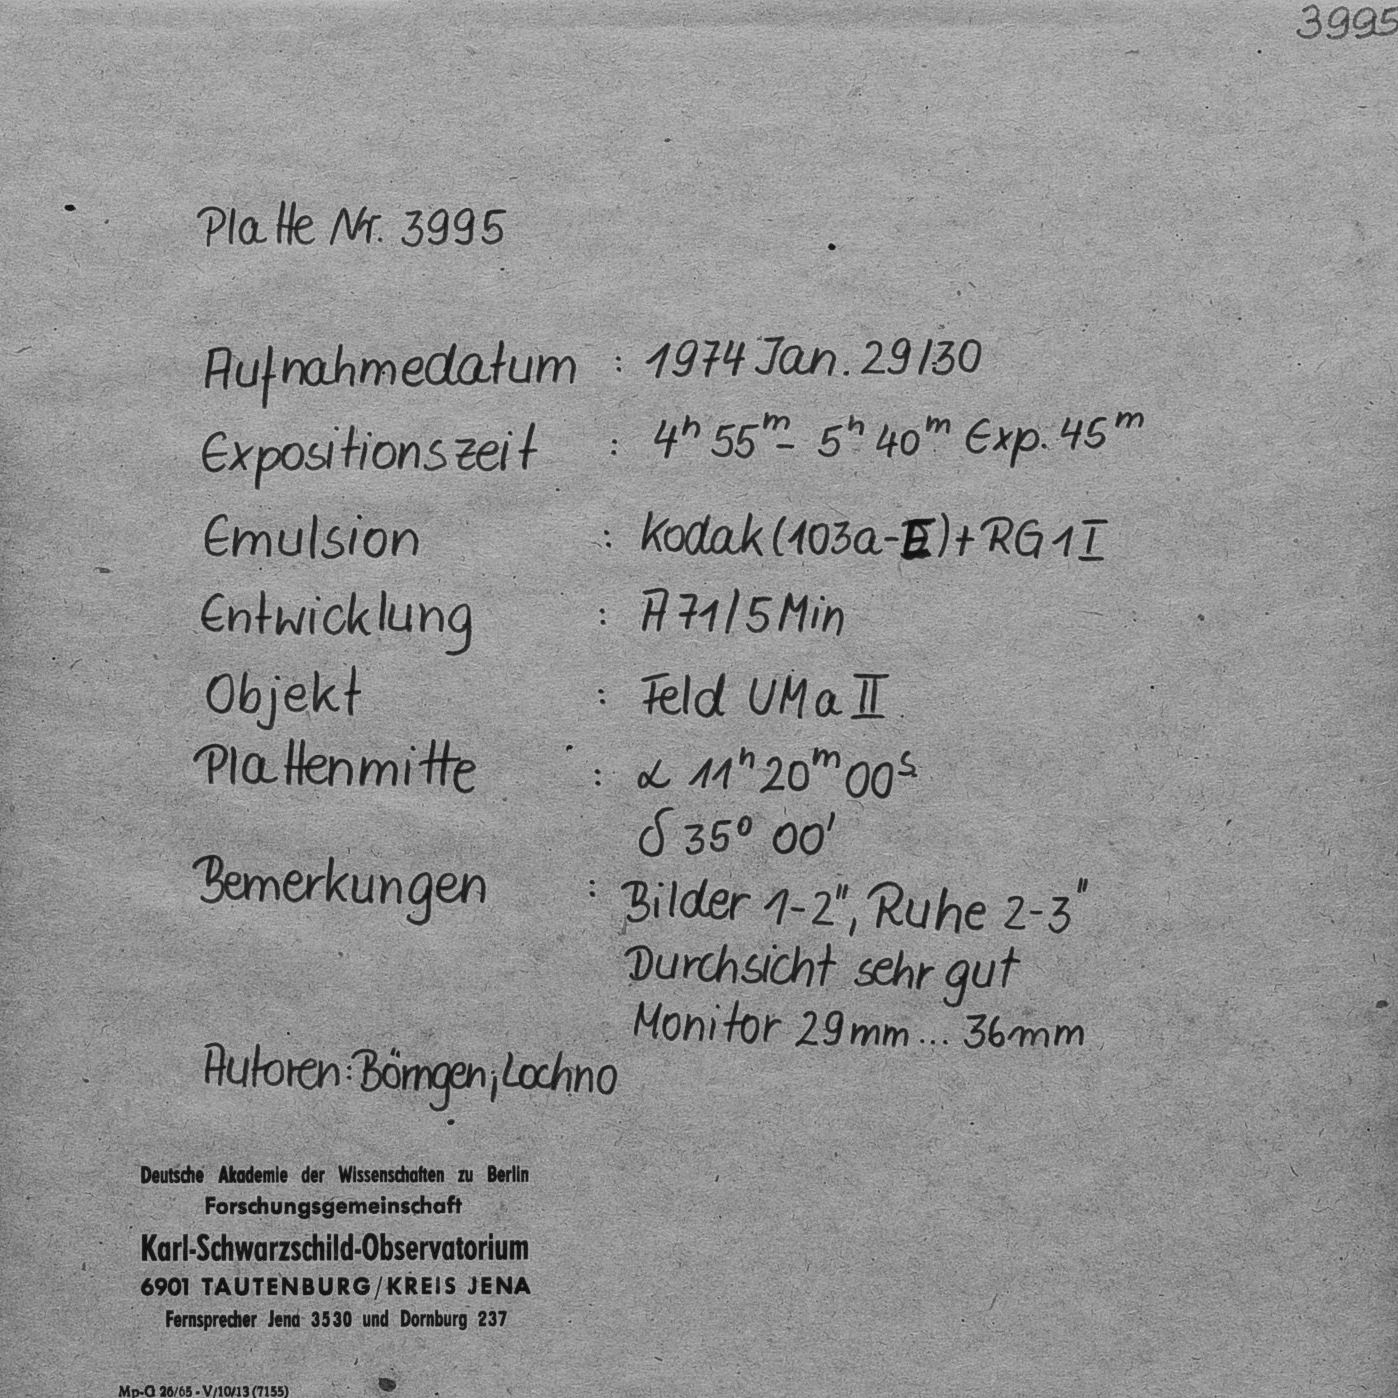 3995
Platte Nr. 3995
Aufnahmedatum : 1974 Jan. 29/30
Expositionszeit : 4ʰ 55ᵐ - 5ʰ 40ᵐ Exp. 45ᵐ
Emulsion : Kodak (103a-E) + RG 1 I
Entwicklung : A 71 / 5 Min
Objekt : Feld UMa II
Plattenmitte : α 11ʰ 20ᵐ 00ˢ
δ 35° 00'
Bemerkungen : Bilder 1-2", Ruhe 2-3"
Durchsicht sehr gut
Monitor 29mm ... 36mm
Autoren: Börngen; Lochno
Deutsche Akademie der Wissenschaften zu Berlin
Forschungsgemeinschaft
Karl-Schwarzschild-Observatorium
6901 TAUTENBURG/KREIS JENA
Fernsprecher Jena 3530 und Dornburg 237
Mp-G 26/65 - V/10/13 (7155)